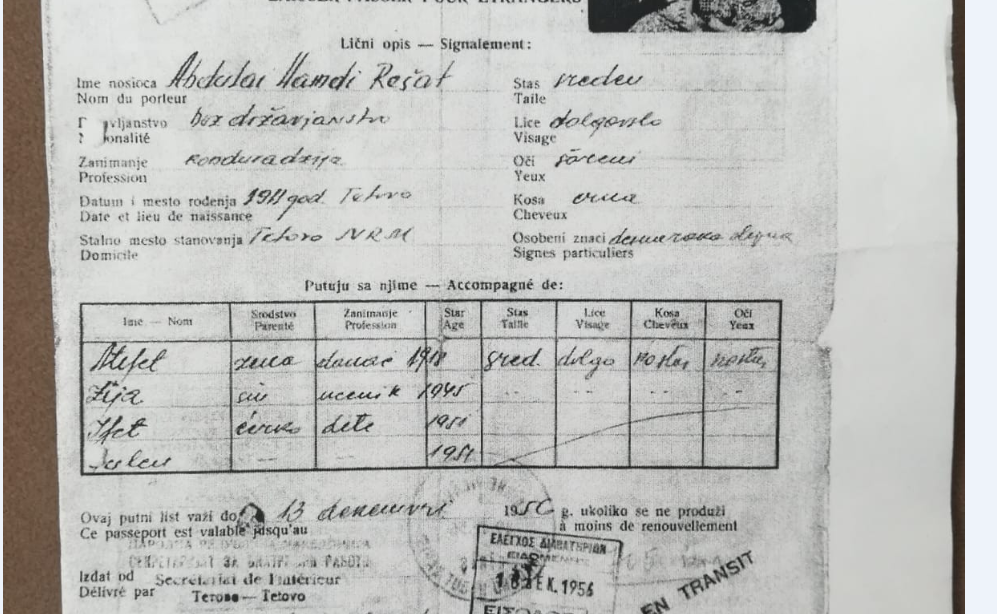 LAISSER-PASSER POUR ETRANGERS
Lični opis — Signalement:
Ime nosioca Abdulai Hamdi Rešat
Nom du porteur
vljanstvo bez državjanstvo
onalité
Zanimanje konduradžija
Profession
Datum i mesto rođenja 1911 god. Tetovo
Date et lieu de naissance
Stalno mesto stanovanja Tetovo NRM
Domicile
Stas sreden
Taille
Lice dolgovesto
Visage
Oči šareni
Yeux
Kosa crna
Cheveux
Osobeni znaci
Signes particuliers
Putuju sa njime — Accompagné de:
Ime — Nom Srodstvo Parenté Zanimanje Profession Star Age Stas Taille Lice Visage Kosa Cheveux Oči Yeux
žena domać 1918 sred. dolgo kosten kosten
Zija sin učenik 1945 -- -- -- --
Ifet ćerka dete 1951
— — 1954
Ovaj putni list važi do 13 1956 g. ukoliko se ne produži
Ce passeport est valable jusqu'au à moins de renouvellement
НАРОДНА РЕПУБЛИКА МАКЕДОНИЈА
СЕКРЕТАРИЈАТ ЗА ВНАТРЕШНИ РАБОТИ
Izdat od Secrétariat de l'intérieur
Délivré par Тетово — Tetovo
ΕΛΕΓΧΟΣ ΔΙΑΒΑΤΗΡΙΩΝ
ΕΙΔΟΜΕΝΗΣ
ΔΕΚ. 1956
EN TRANSIT